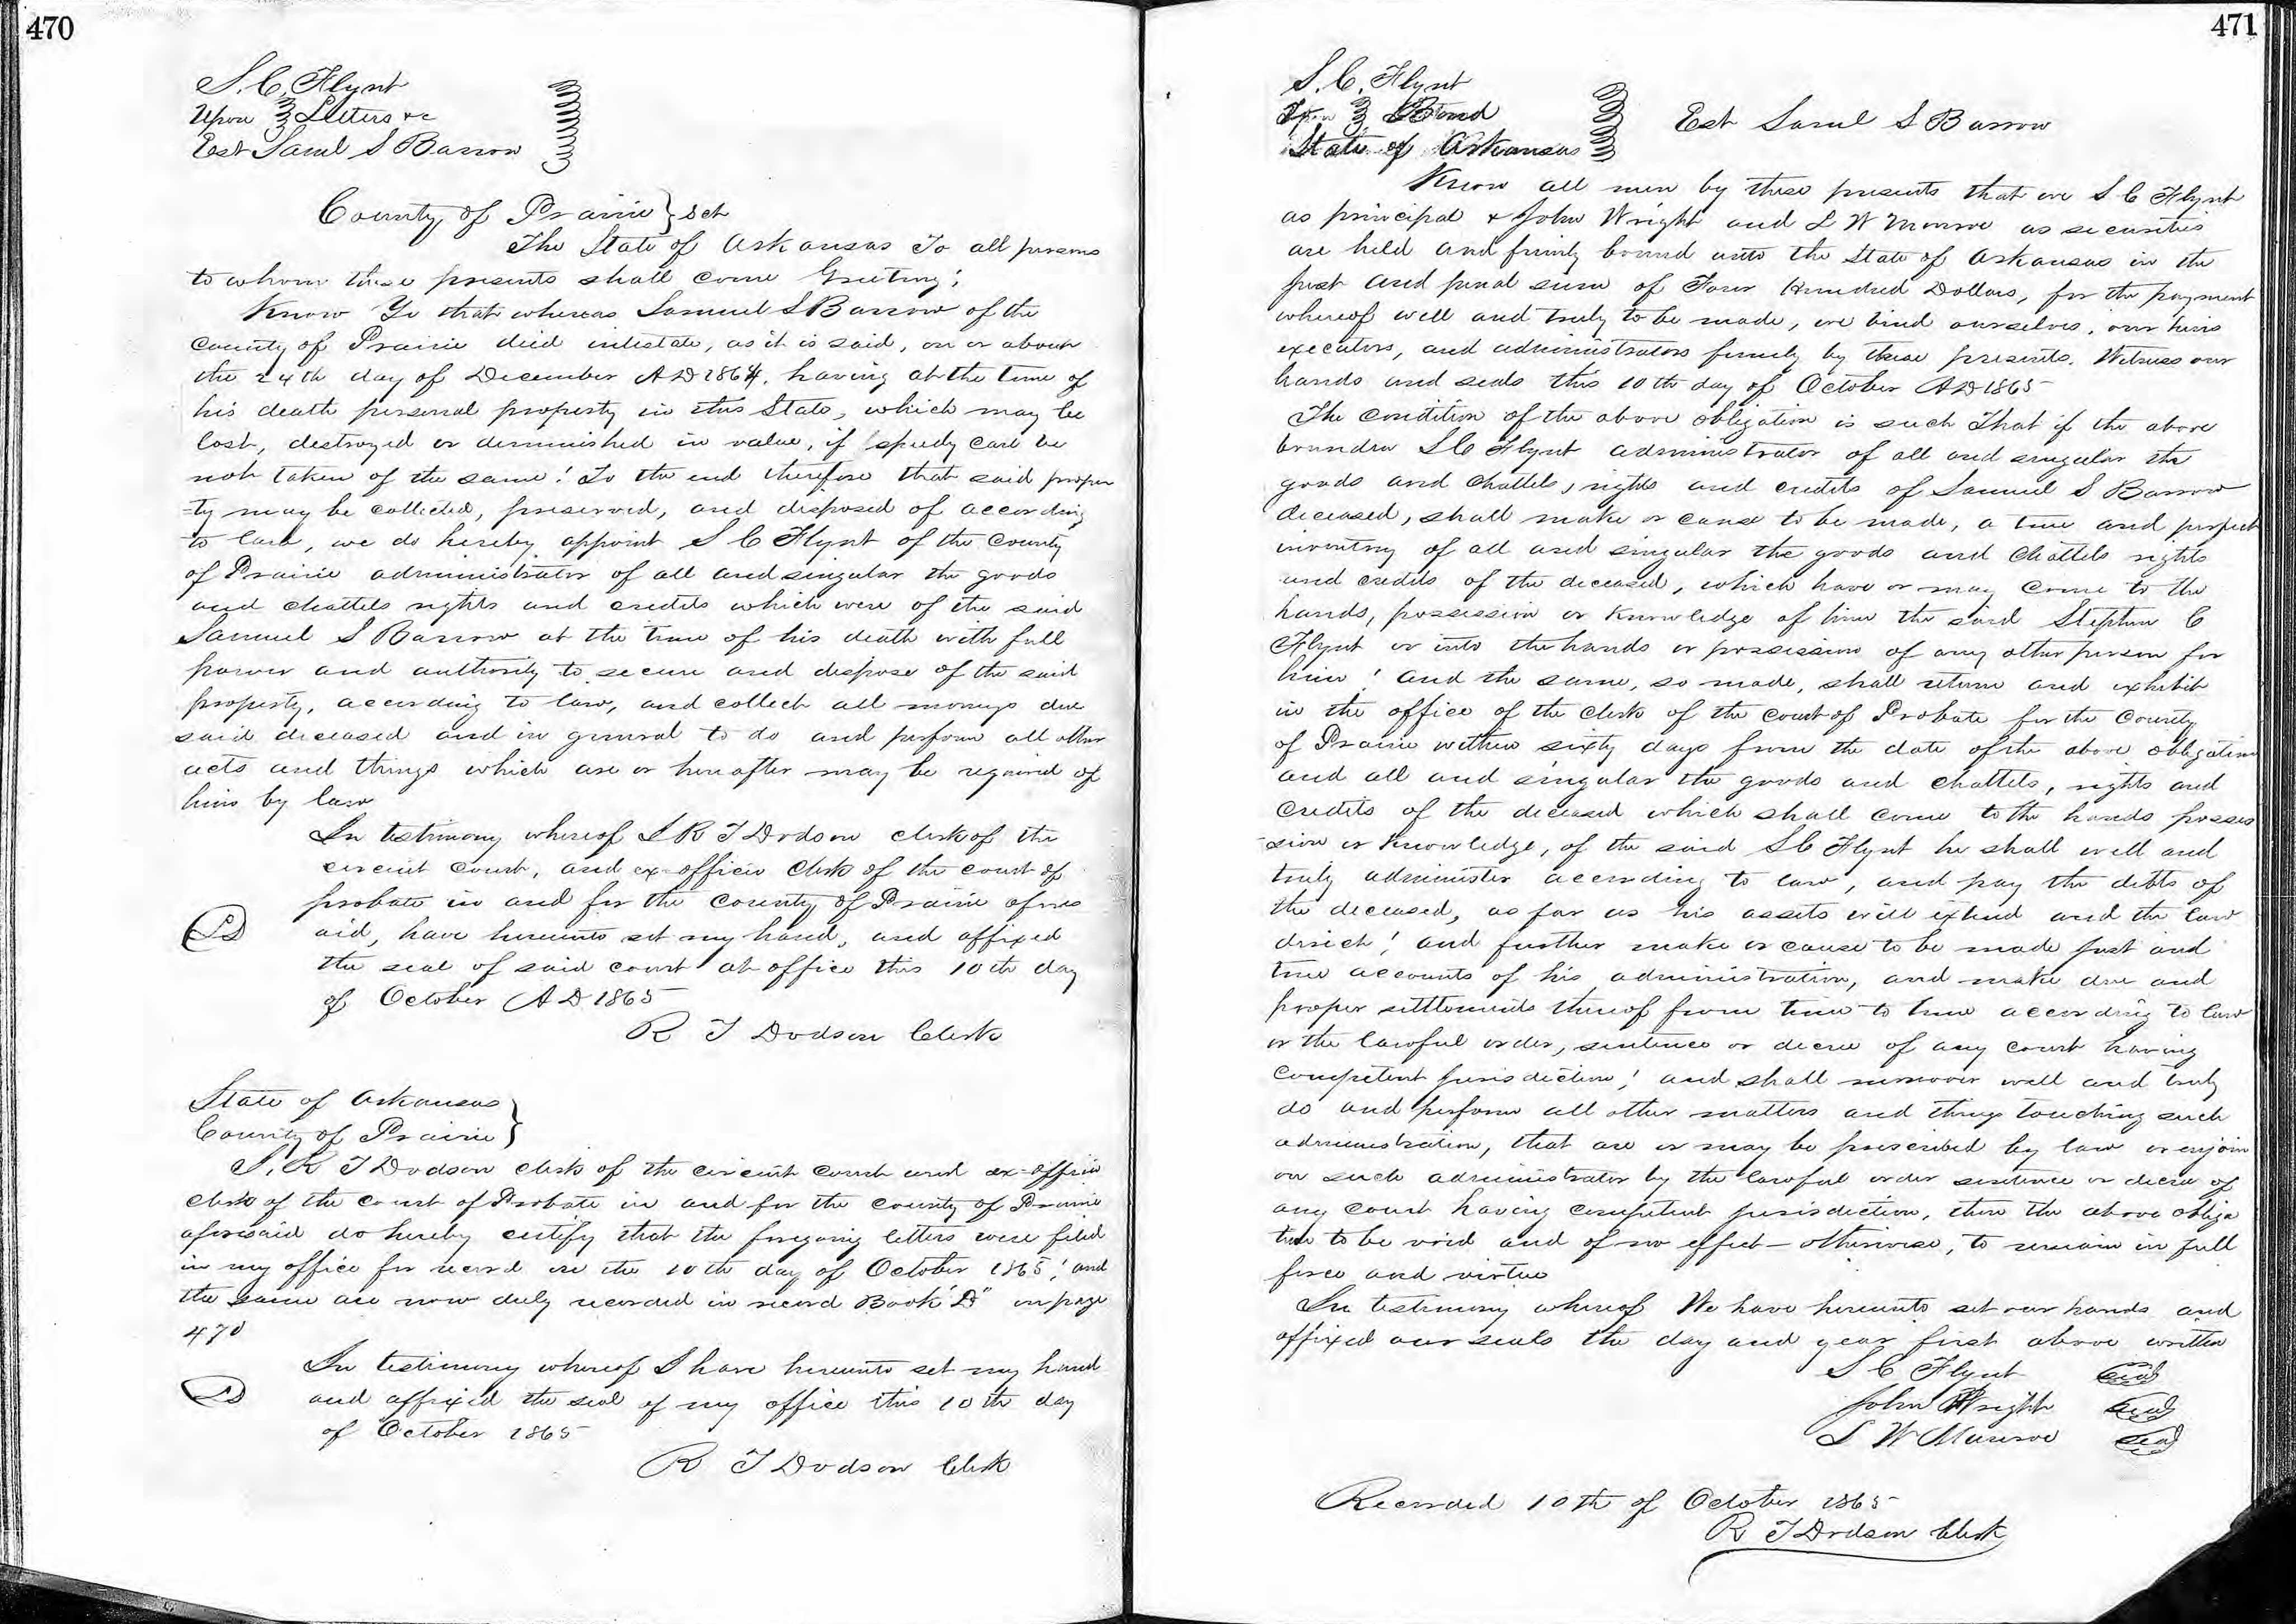 470
S. C. Flynt
Upon } Letters &c
Est Saml S Barrow
County of Prairie } Sct
The State of Arkansas To all persons
to whom these presents shall come Greeting;
Know Ye that whereas Samuel S Barrow of the
County of Prairie died intestate, as it is said, on or about
the 24th day of December AD 1864, having at the time of
his death personal property in this State, which may be
lost, destroyed or dimminished in value, if speedy care be
not taken of the same! To the end therefore that said proper
=ty may be collected, preserved, and disposed of according
to law, we do hereby appoint S C Flynt of the County
of Prairie administrator of all and singular the goods
and chattels rights and credits which were of the said
Samuel S Barrow at the time of his death with full
power and authority to secure and dispose of the said
property, according to law, and collect all moneys due
said deceased and in general to do and perform all other
acts and things which are or hereafter may be required of
him by law
In testimony whereof I R T Dodson clerk of the
circuit court, and ex-officio clerk of the court of
probate in and for the County of Prairie afores
aid, have hereunto set my hand, and affixed
LS
the seal of said court at office this 10th day
of October AD 1865
R T Dodson Clerk
State of Arkansas
County of Prairie }
I, R T Dodson clerk of the circuit court and ex-officio
clerk of the court of Probate in and for the County of Prairie
aforesaid do hereby certify that the foregoing letters were filed
in my office for record on the 10th day of October 1865; and
the same are now duly recorded in record Book "D" on page
470
In testimony whereof I have hereunto set my hand
LS and affixed the seal of my office this 10th day
of October 1865
R T Dodson Clerk
471
S. C. Flynt
Upon } Bond
State of Arkansas
Est Saml S Barrow
Know all men by these presents that we S C Flynt
as principal & John Wright and L W Munroe as securities
are held and firmly bound unto the State of Arkansas in the
just and penal sum of Four Hundred Dollars, for the payment
whereof well and truly to be made, we bind ourselves, our heirs
executors, and administrators firmly by these presents. Witness our
hands and seals this 10th day of October AD 1865
The condition of the above obligation is such That if the above
bounden S C Flynt administrator of all and singular the
goods and chattels, rights and credits of Samuel S Barrow
deceased, shall make or cause to be made, a true and perfect
inventory of all and singular the goods and chattels rights
and credits of the deceased, which have or may come to the
hands, possession or knowledge of him the said Stephen C
Flynt or into the hands or possession of any other person for
him! and the same, so made, shall return and exhibit
in the office of the clerk of the court of Probate for the County
of Prairie within sixty days from the date of the above obligation
and all and singular the goods and chattels, rights and
credits of the deceased which shall come to the hands posses
-sion or knowledge, of the said S C Flynt he shall well and
truly administer according to law, and pay the debts of
the deceased, as far as his assets will extend and the law
direct! and further make or cause to be made just and
true accounts of his administration, and make due and
proper settlements thereof from time to time according to law
or the lawful order, sentence or decree of any court having
competent jurisdiction! and shall moreover well and truly
do and perform all other matters and things touching such
administration, that are or may be prescribed by law or enjoin
on such administrator by the lawful order sentence or decree of
any court having competent jurisdiction, then the above obliga
tion to be void and of no effect - otherwise, to remain in full
force and virtue
In testimony whereof We have hereunto set our hands and
affixed our seals the day and year first above written
S C Flynt seal
John Wright seal
L W Munroe seal
Recorded 10th of October 1865
R T Dodson Clerk